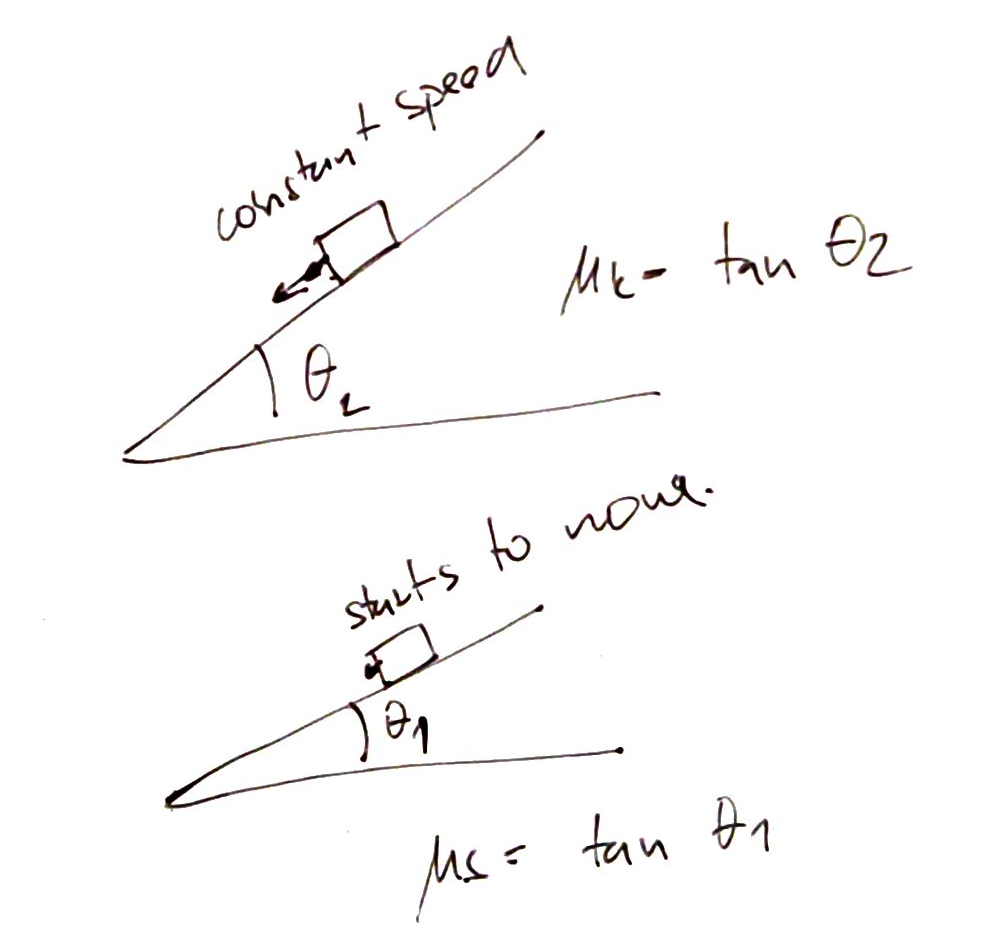 constant speed
μk = tan θ2
θ2
starts to move.
θ1
μs = tan θ1